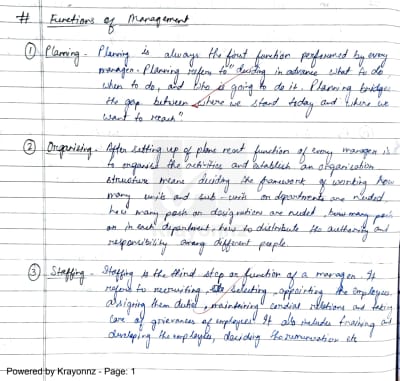 # Functions of Management
① Planning - Planning is always the first function performed by every
manager. Planning refers to "deciding in advance what to do
when to do, and who is going to do it. Planning bridges
the gap between where we stand today and where we
want to reach"
② Organising - After setting up of plans next function of every manager is
to organise the activities and establish an organisation
structure means deciding the framework of working how
many units and sub-units or departments are needed
how many posts or designations are needed, how many posts
or in each department, how to distribute the authority and
responsibility among different people.
③ Staffing - Staffing is the third step or function of a manager. It
refers to recruiting, selecting, appointing the employees
assigning them duties, maintaining cordial relations and taking
care of grievances of employees. It also includes training and
developing the employees, deciding the remuneration etc
Powered by Krayonnz - Page: 1